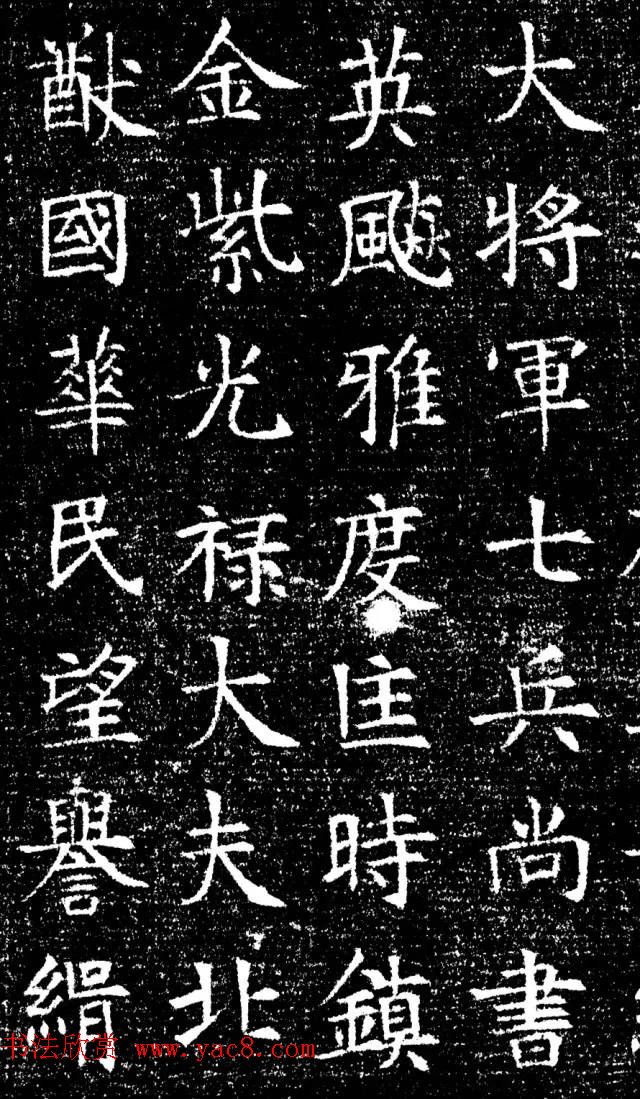 大將軍七兵尚書
英飈雅度匡時鎮
金紫光禄大夫北
猷國華民望譽緝
书法欣赏 www.yac8.com